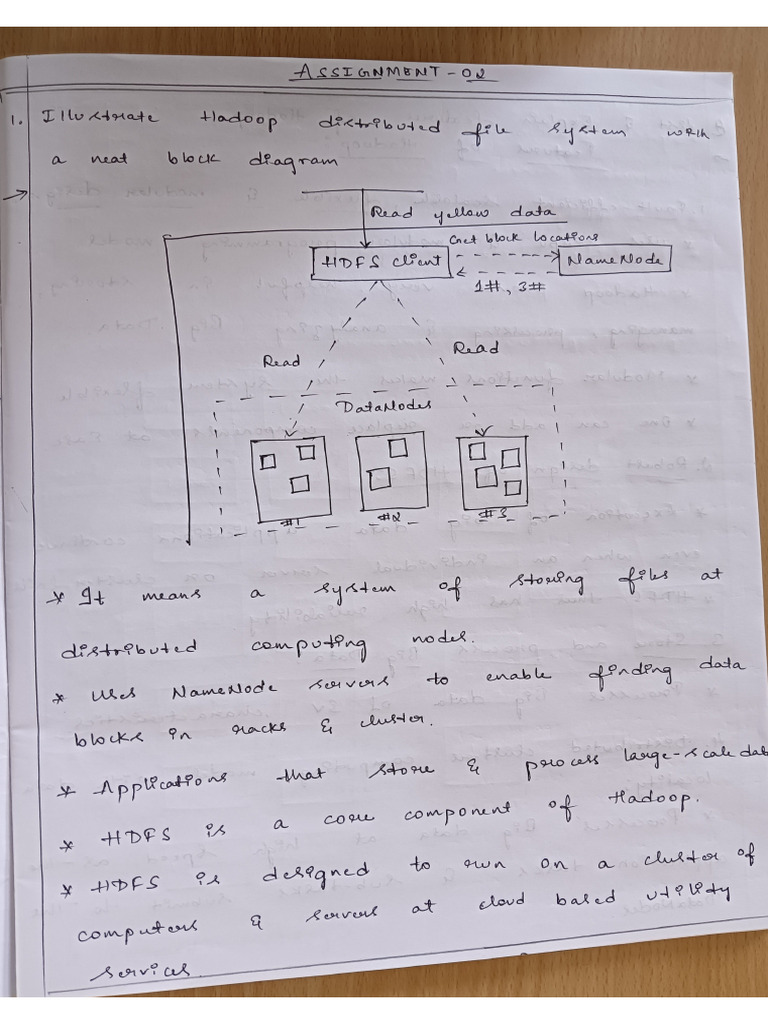 ASSIGNMENT - 02
1. Illustrate Hadoop distributed file system with
a neat block diagram
→
Read yellow data
Get block locations
HDFS client
NameNode
1#, 3#
Read
Read
DataNodes
#1
#2
#3
* It means a system of storing files at
distributed computing nodes.
* Uses NameNode servers to enable finding data
blocks in racks & cluster.
* Applications that store & process large-scale data
* HDFS is a core component of Hadoop.
* HDFS is designed to run on a cluster of
computers & servers at cloud based utility
services.